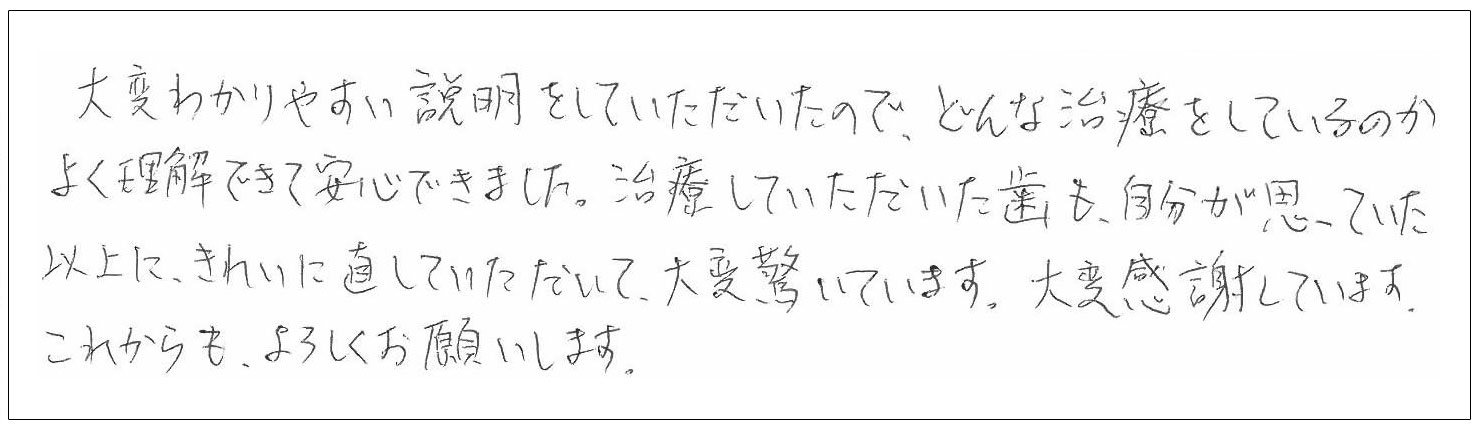 大変わかりやすい説明をしていただいたので、どんな治療をしているのか
よく理解できて安心できました。治療していただいた歯も、自分が思っていた
以上に、きれいに直していただいて、大変驚いています。大変感謝しています。
これからも、よろしくお願いします。